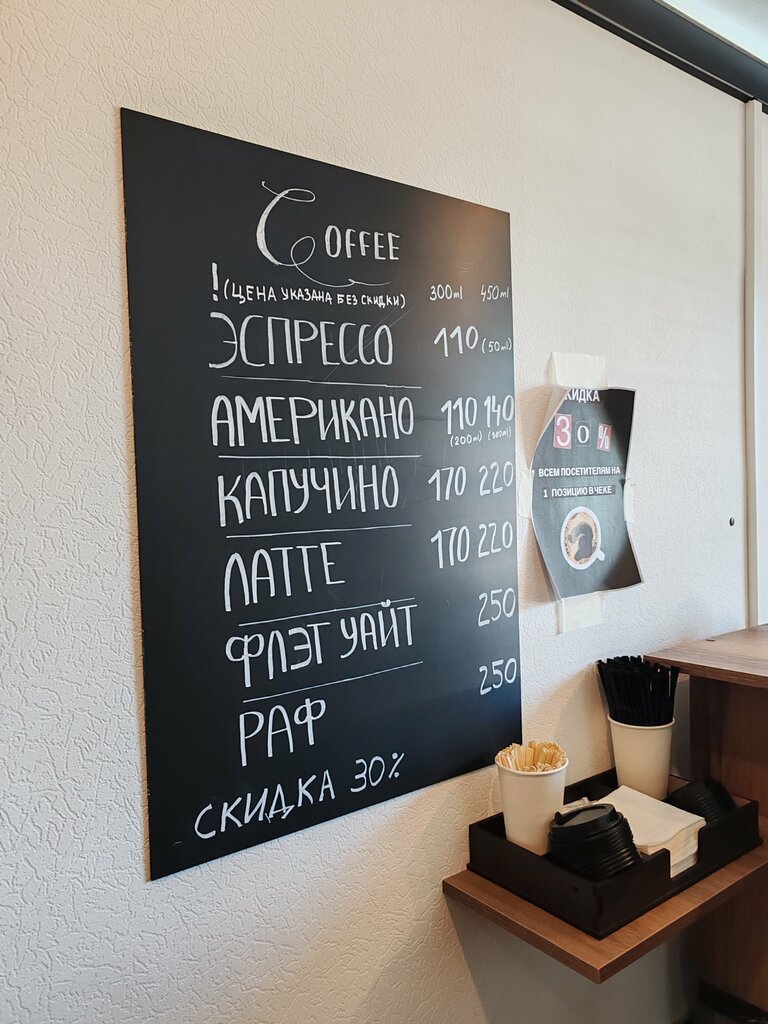 COFFEE
!(ЦЕНА УКАЗАНА БЕЗ СКИДКИ) 300ml 450ml
ЭСПРЕССО 110 (50ml)
АМЕРИКАНО 110 140
(200ml) (300ml)
КАПУЧИНО 170 220
ЛАТТЕ 170 220
ФЛЭТ УАЙТ 250
РАФ 250
СКИДКА 30%
КИДКА
30%
ВСЕМ ПОСЕТИТЕЛЯМ НА
1 ПОЗИЦИЮ В ЧЕКЕ